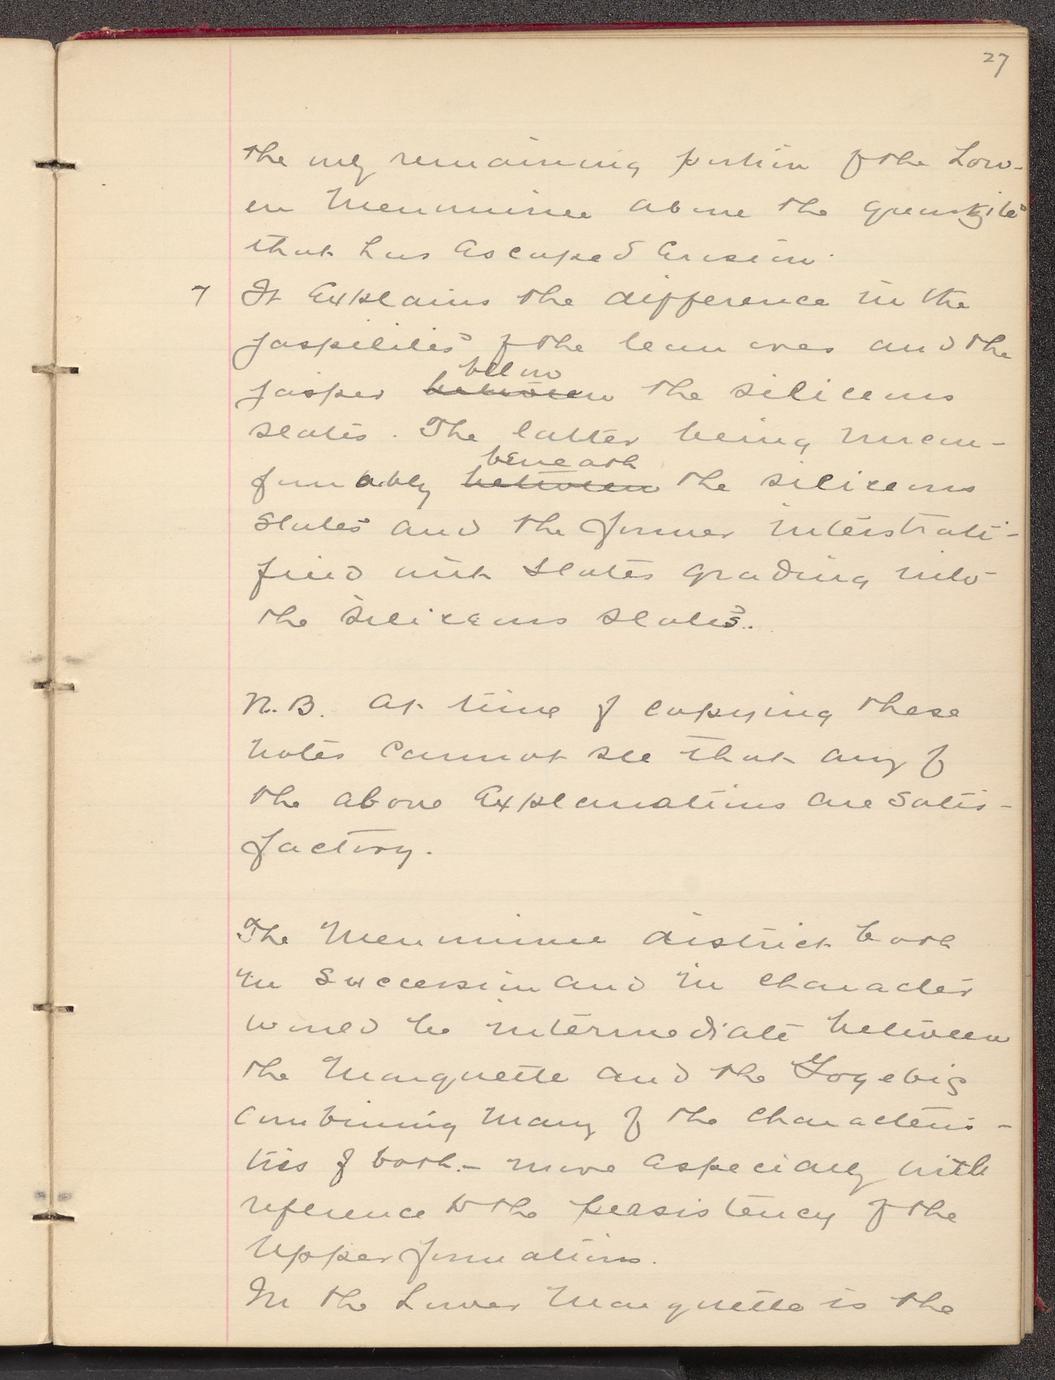 27
the only remaining portion of the Low-
er Menominee above the quartzite
that has escaped erosion.
7 It explains the difference in the
jaspilites of the lean ores and the
below
jasper between the siliceous
slates. The latter being uncon-
beneath
formably between the siliceous
slates and the former interstrati-
fied with slates grading into
the siliceous slates.
N.B. At time of copying these
notes cannot see that any of
the above explanations are satis-
factory.
The Menominee district both
in succession and in character
would be intermediate between
the Marquette and the Gogebig
combining many of the characteris-
tics of both - more especially with
reference to the persistency of the
Upper formations.
In the Lower Marquette is the